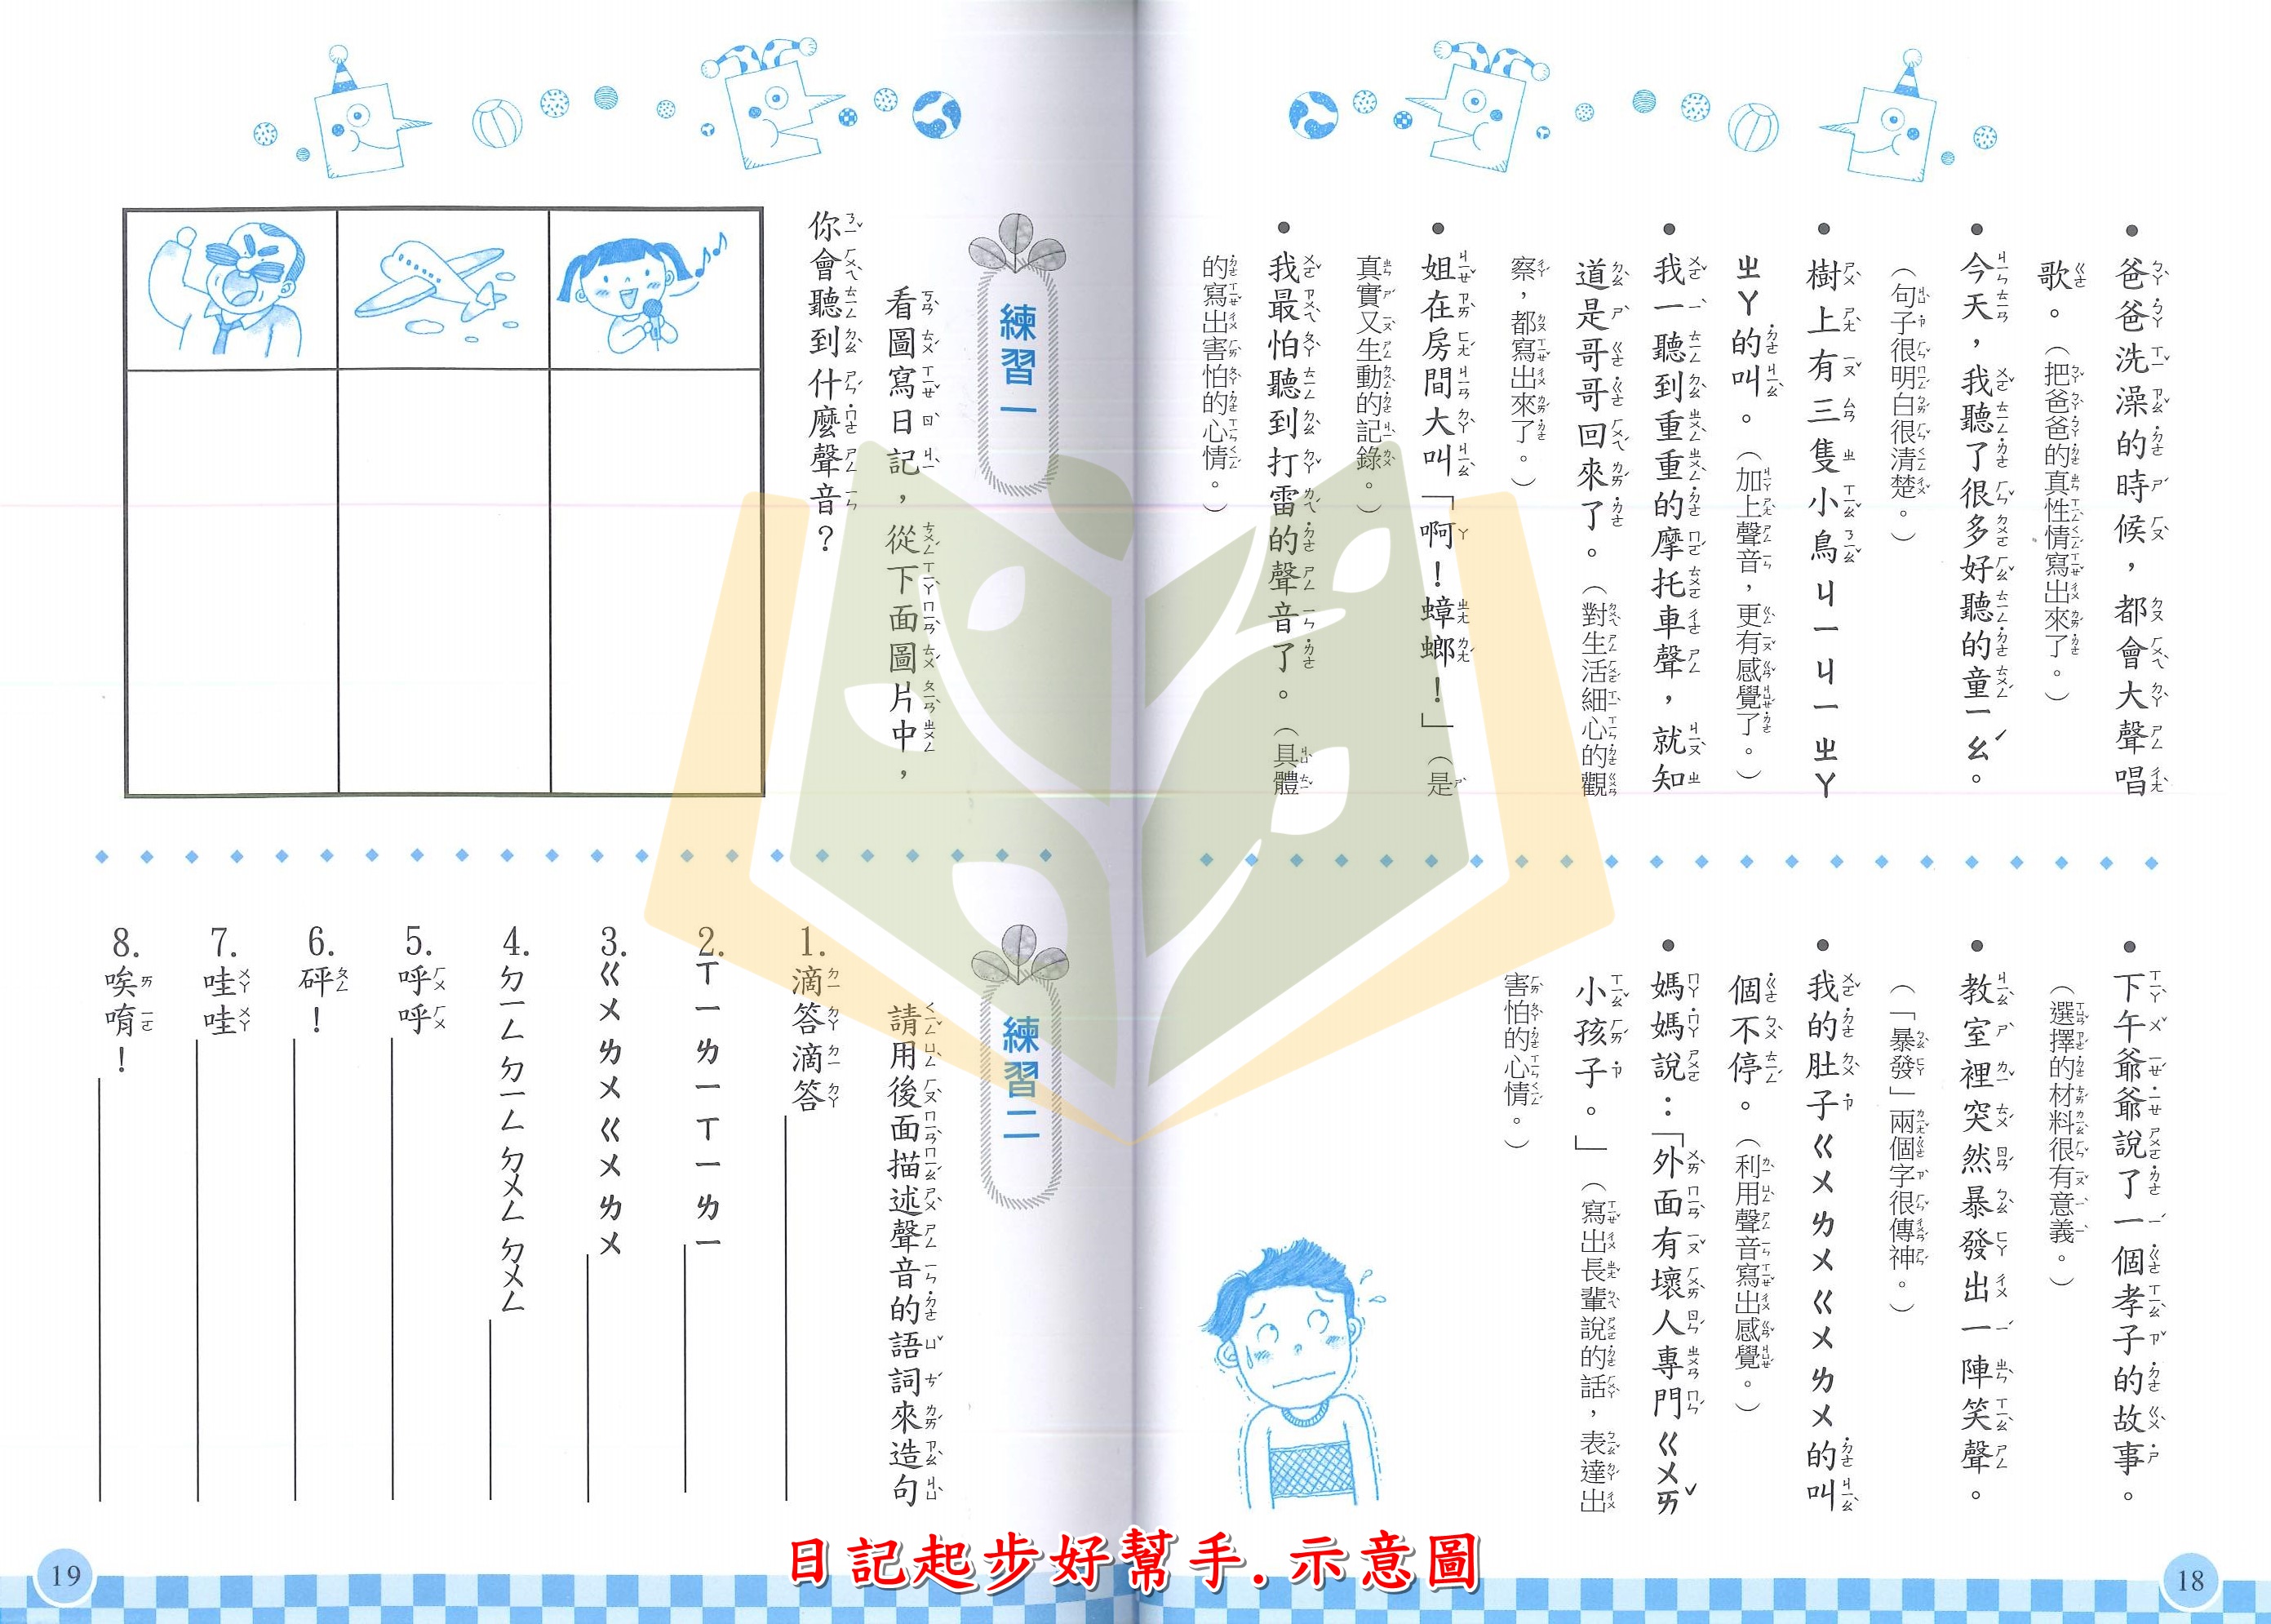 爸爸洗澡的時候，都會大聲唱
歌。（把爸爸的真性情寫出來了。）
今天，我聽了很多好聽的童ㄧㄠˊ。
（句子很明白很清楚。）
樹上有三隻小鳥ㄐㄧㄐㄧㄓㄚ
ㄓㄚ的叫。（加上聲音，更有感覺了。）
我一聽到重重的摩托車聲，就知
道是哥哥回來了。（對生活細心的觀
察，都寫出來了。）
姐在房間大叫「啊！蟑螂！」（是
真實又生動的記錄。）
我最怕聽到打雷的聲音了。（具體
的寫出害怕的心情。）
下午爺爺說了一個孝子的故事。
（選擇的材料很有意義。）
教室裡突然暴發出一陣笑聲。
（「暴發」兩個字很傳神。）
我的肚子ㄍㄨㄌㄨㄍㄨㄌㄨ的叫
個不停。（利用聲音寫出感覺。）
媽媽說：「外面有壞人專門ㄍㄨㄞˇ
小孩子。」（寫出長輩說的話，表達出
害怕的心情。）
18
練習一
看圖寫日記，從下面圖片中，
你會聽到什麼聲音？
練習二
請用後面描述聲音的語詞來造句
1.滴答滴答
2.ㄒㄧㄌㄧㄒㄧㄌㄧ
3.ㄍㄨㄌㄨㄍㄨㄌㄨ
4.ㄉㄧㄥㄉㄧㄥㄉㄨㄥㄉㄨㄥ
5.呼呼
6.砰！
7.哇哇
8.唉唷！
19
日記起步好幫手.示意圖